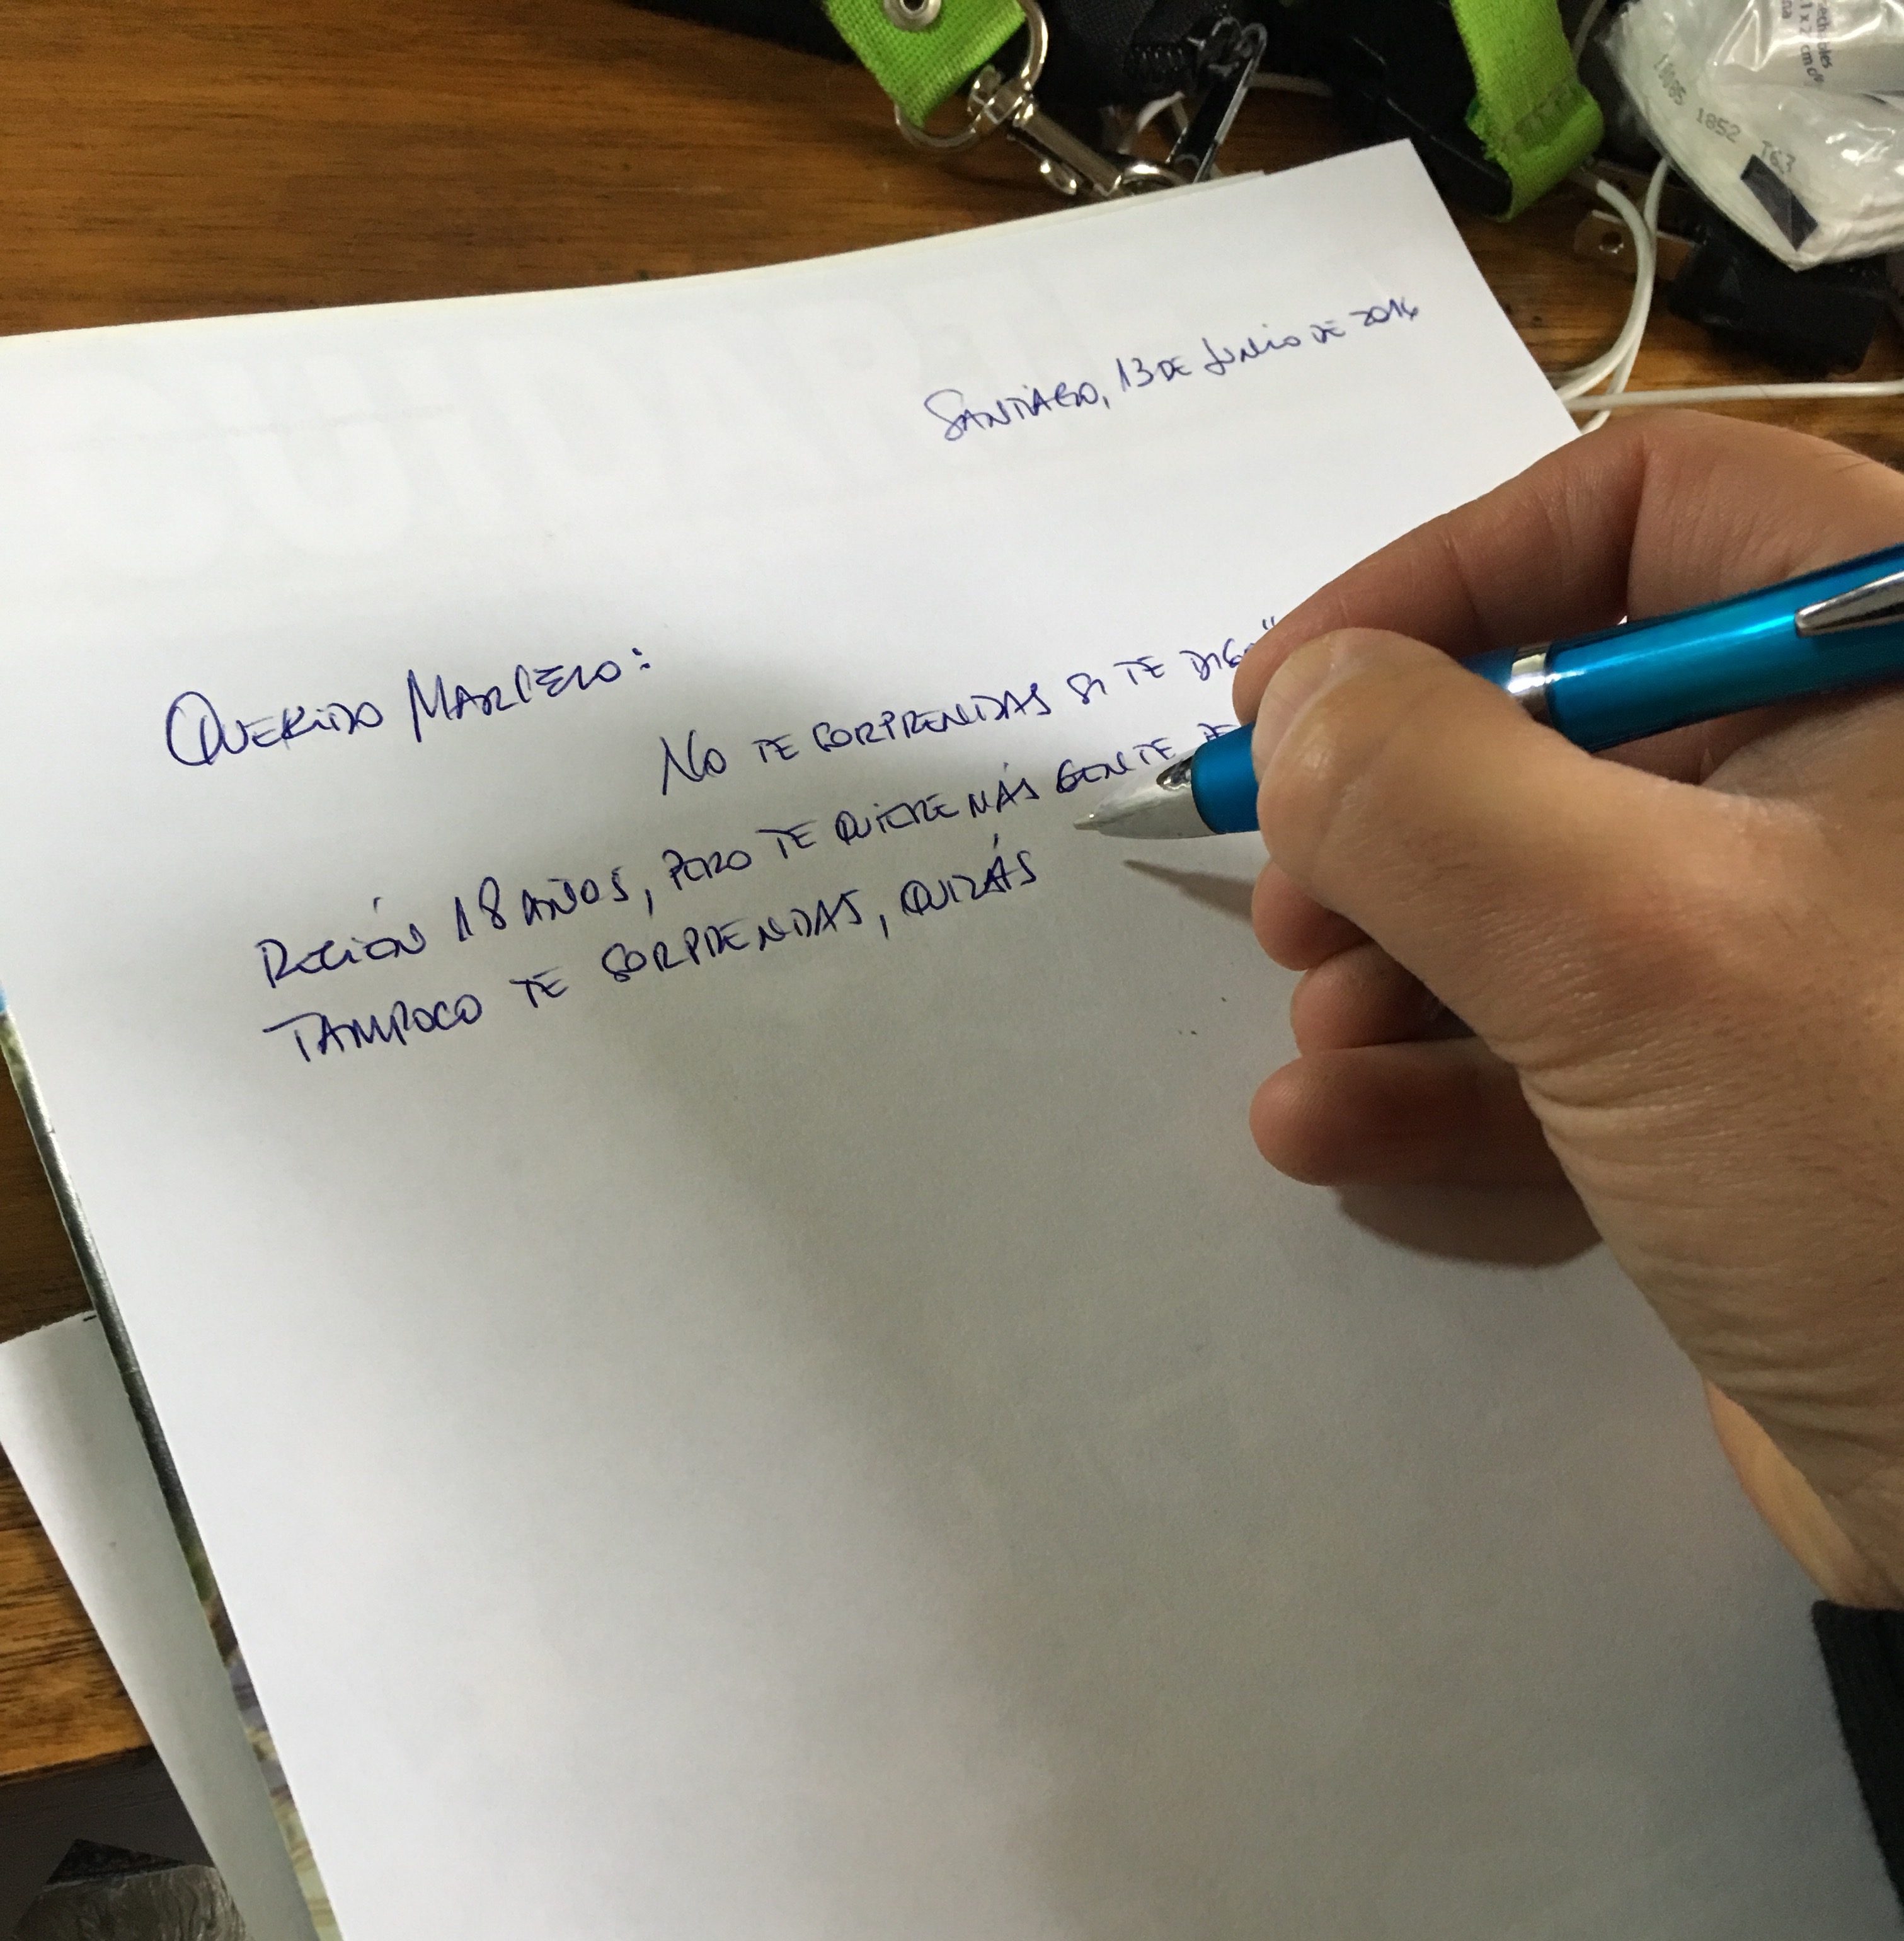 SANTIAGO, 13 DE JUNIO DE 2016
QUERIDO MARCELO:
NO TE SORPRENDAS SI TE DIGO "
RECIÉN 18 AÑOS, PERO TE QUIERE MÁS GENTE DE
TAMPOCO TE SORPRENDAS, QUIZÁS
1852 T63